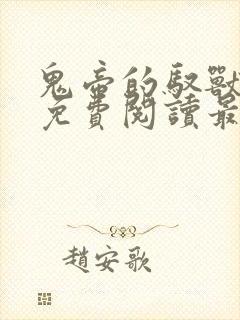 鬼帝的馭獸
免費閱讀最
趙安歌